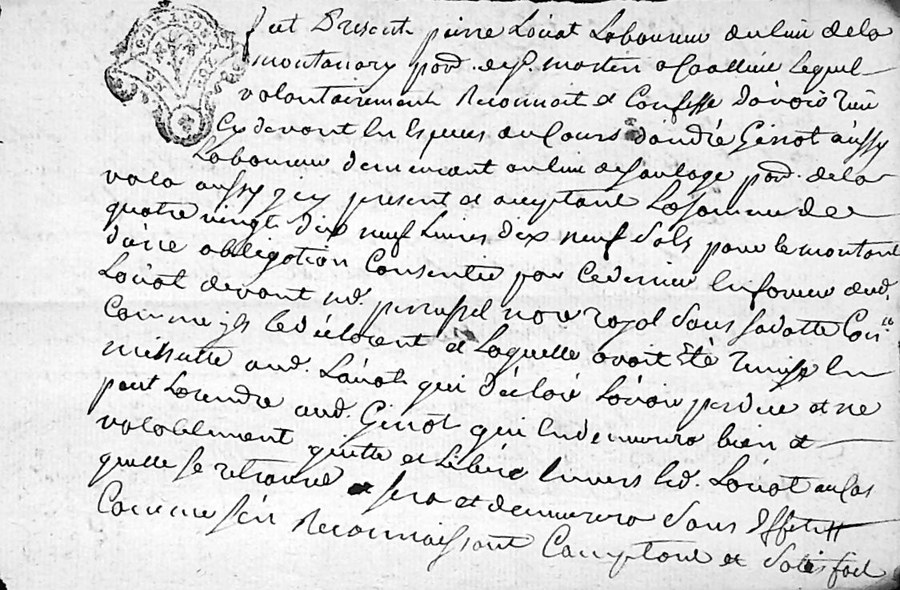 fut Présent pierre Loüat Laboureur au lieu de la
montanary parr. de St martin a Coalieu Lequel
volontairement Reconnoit et Confesse d'avoir Reçu
Cy devant En Especes au Cours d'andré Ginot aussy
Laboureur demeurant au lieu de Saulage parr. de la
vala aussy icy présent et acceptant La somme de
quatre vingt dix neuf Livres dix neuf Sols pour le montant
d'une obligation Consentie par Ce dernier En faveur dud.
Loüat devant Me. not.re royal Sous Sa datte Con.ue
Comme ils le déclarent et Laquelle avoit été remise En
minutte aud. Loüat qui déclare L'avoir perdue et ne
peut La rendre aud. Ginot qui En demeurera bien et
valablement quitte et Libéré Envers led. Loüat au Cas
quelle se retrouve sera et demeurera Sans Effet
Comme s'en Reconnaissant Comptant et Satisfait